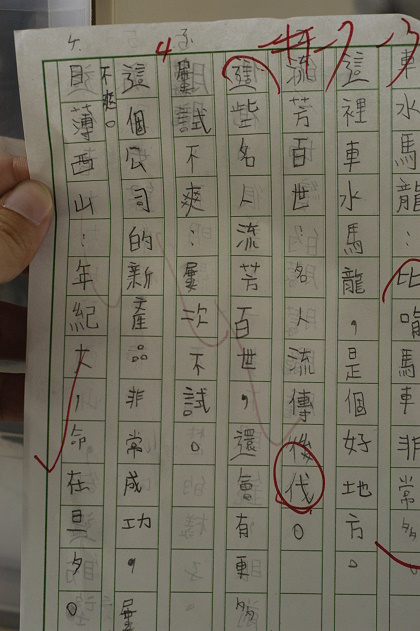 車水馬龍：比喻馬車非常多。
這裡車水馬龍，是個好地方。
流芳百世：名人流傳後伐。
這些名人流芳百世，還會有更多
4
屢試不爽：屢次不試。
這個公司的新產品非常成功，屢
不爽。
日薄西山：年紀大，命在旦夕。